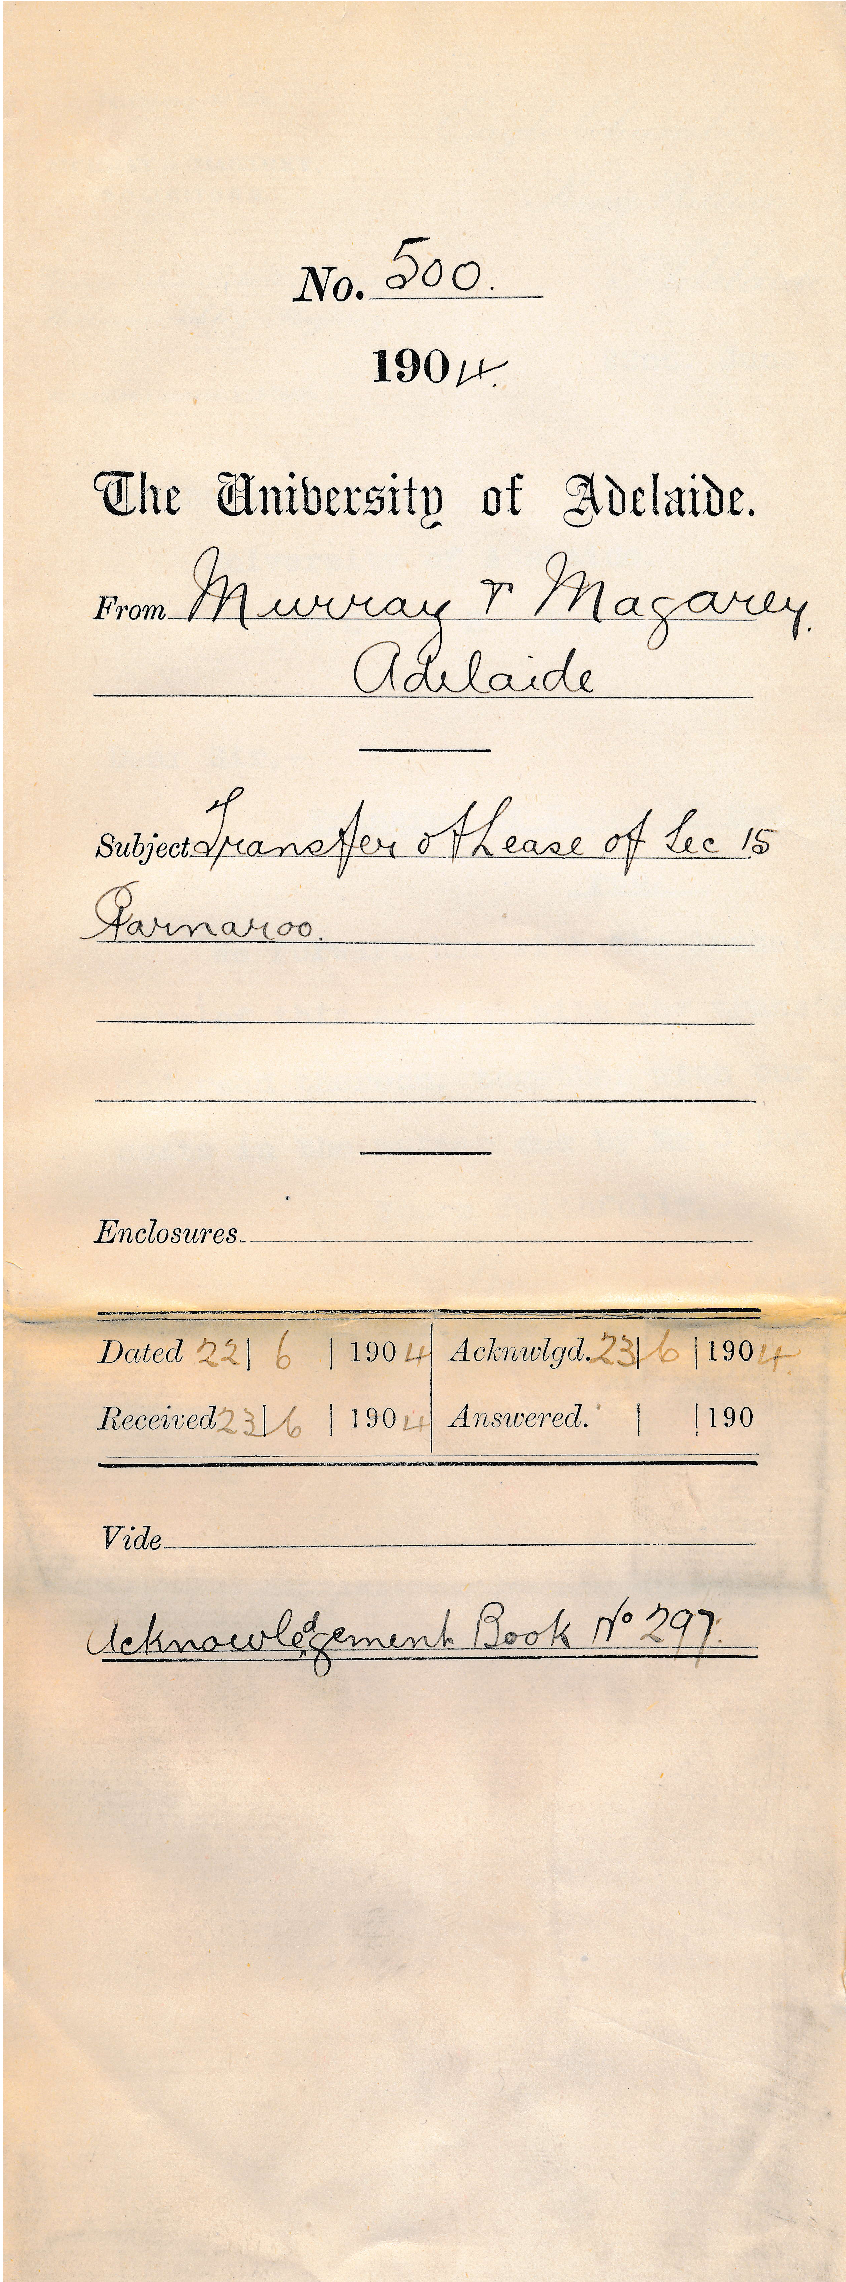 No. 500.
1904.
The University of Adelaide.
From Murray & Magarey.
Adelaide
Subject Transfer of Lease of Sec 15
Parnaroo.
Enclosures
Dated 22| 6 | 1904 Acknwlgd. 23|6 |1904.
Received 23|6 | 1904 Answered. | |190
Vide
Acknowledgement Book No 297.